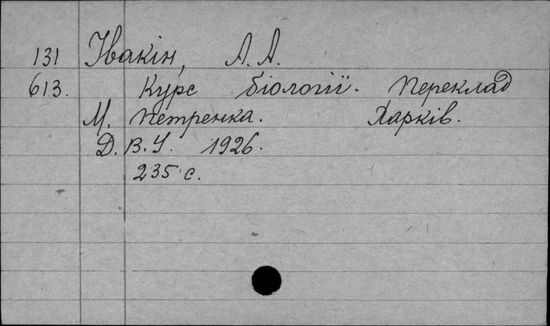 131 Івакін, А. А.
613. Курс біології. Переклад
М. Петренка. Харків.
Д.В.У. 1926.
235 с.